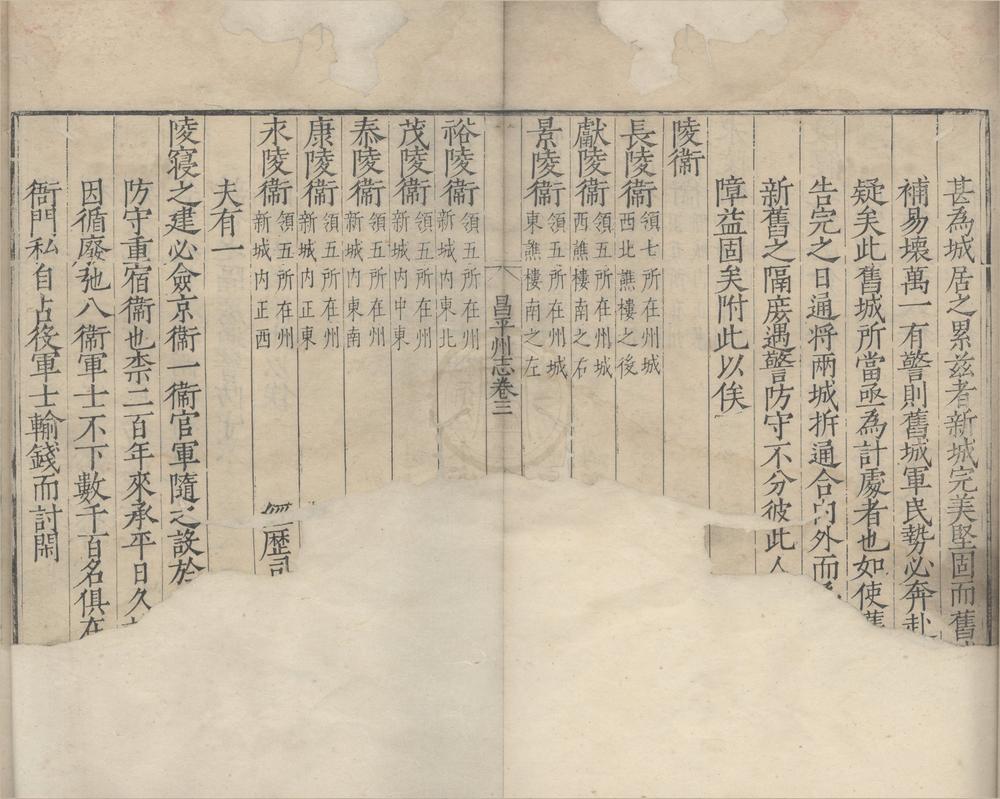 甚為城居之累茲者新城完美堅固而舊
補易壞萬一有警則舊城軍民勢必奔赴
疑矣此舊城所當亟為計處者也如使舊
告完之日通將兩城拆通合內外而
新舊之隔庻遇警防守不分彼此人
障益固矣附此以俟
陵衞
長陵衞領七所在州城西北譙樓之後
獻陵衞領五所在州城西譙樓南之右
景陵衞領五所在州城東譙樓南之左
昌平州志卷三
裕陵衞領五所在州新城內東北
茂陵衞領五所在州新城內中東
泰陵衞領五所在州新城內東南
康陵衞領五所在州新城內正東
永陵衞領五所在州新城內正西 經歷司
夫有一
陵寢之建必僉京衞一衞官軍隨之設於
防守重宿衞也柰二百年來承平日久
因循廢弛八衞軍士不下數千百名俱在
衙門私自占役軍士輸錢而討閑